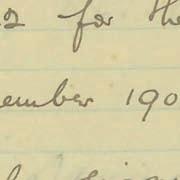 2 for the
ember 190